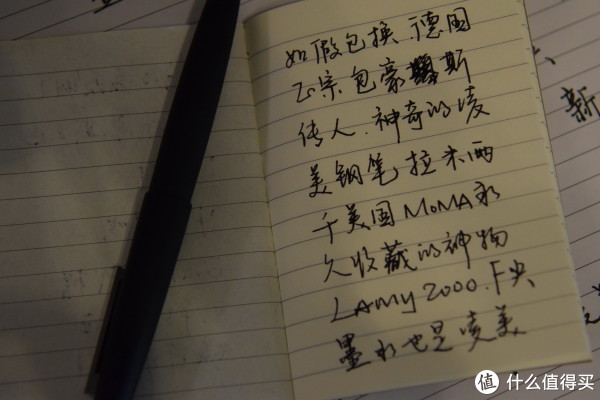 如假包换.德国
正宗包豪斯
传人.神奇的凌
美钢笔拉米两
千美国MoMA永
久收藏的神物
LAMY 2000.F尖
墨水也是凌美
新
值 什么值得买